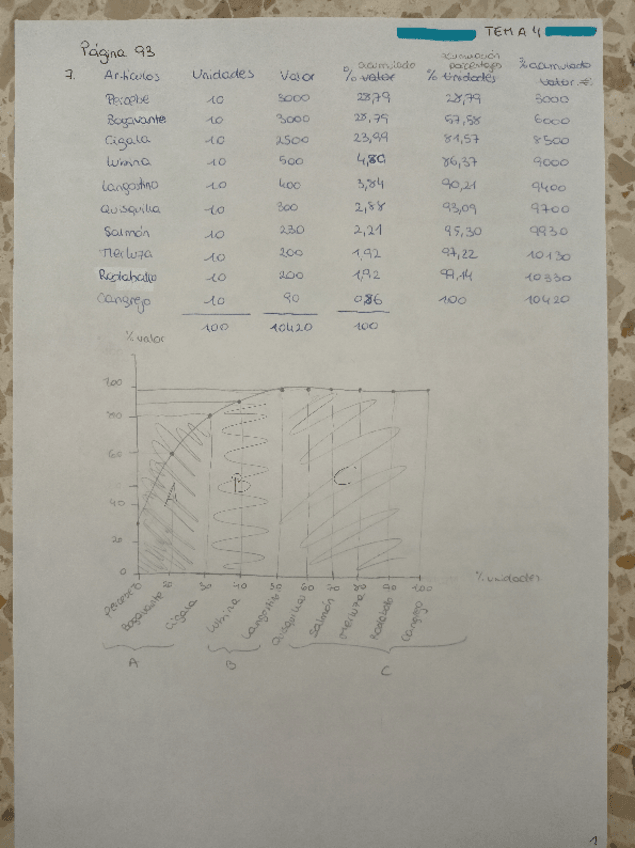 TEMA 4
Página 93
7. Artículos Unidades Valor % valor acumulado % unidades acumulación porcentajes % acumulado valor €
Percebe 10 3000 28,79 28,79 3000
Bogavante 10 3000 28,79 57,58 6000
Cigala 10 2500 23,99 81,57 8500
Lubina 10 500 4,80 86,37 9000
Langostino 10 400 3,84 90,21 9400
Quisquilla 10 300 2,88 93,09 9700
Salmón 10 230 2,21 95,30 9930
Merluza 10 200 1,92 97,22 10130
Rodaballo 10 200 1,92 99,14 10330
Cangrejo 10 90 0,86 100 10420
100 10420 100
% valor
100
80
60
40
20
0
A B C
10 20 30 40 50 60 70 80 90 100 % unidades
Percebe Bogavante Cigala Lubina Langostino Quisquilla Salmón Merluza Rodaballo Cangrejo
A B C
1